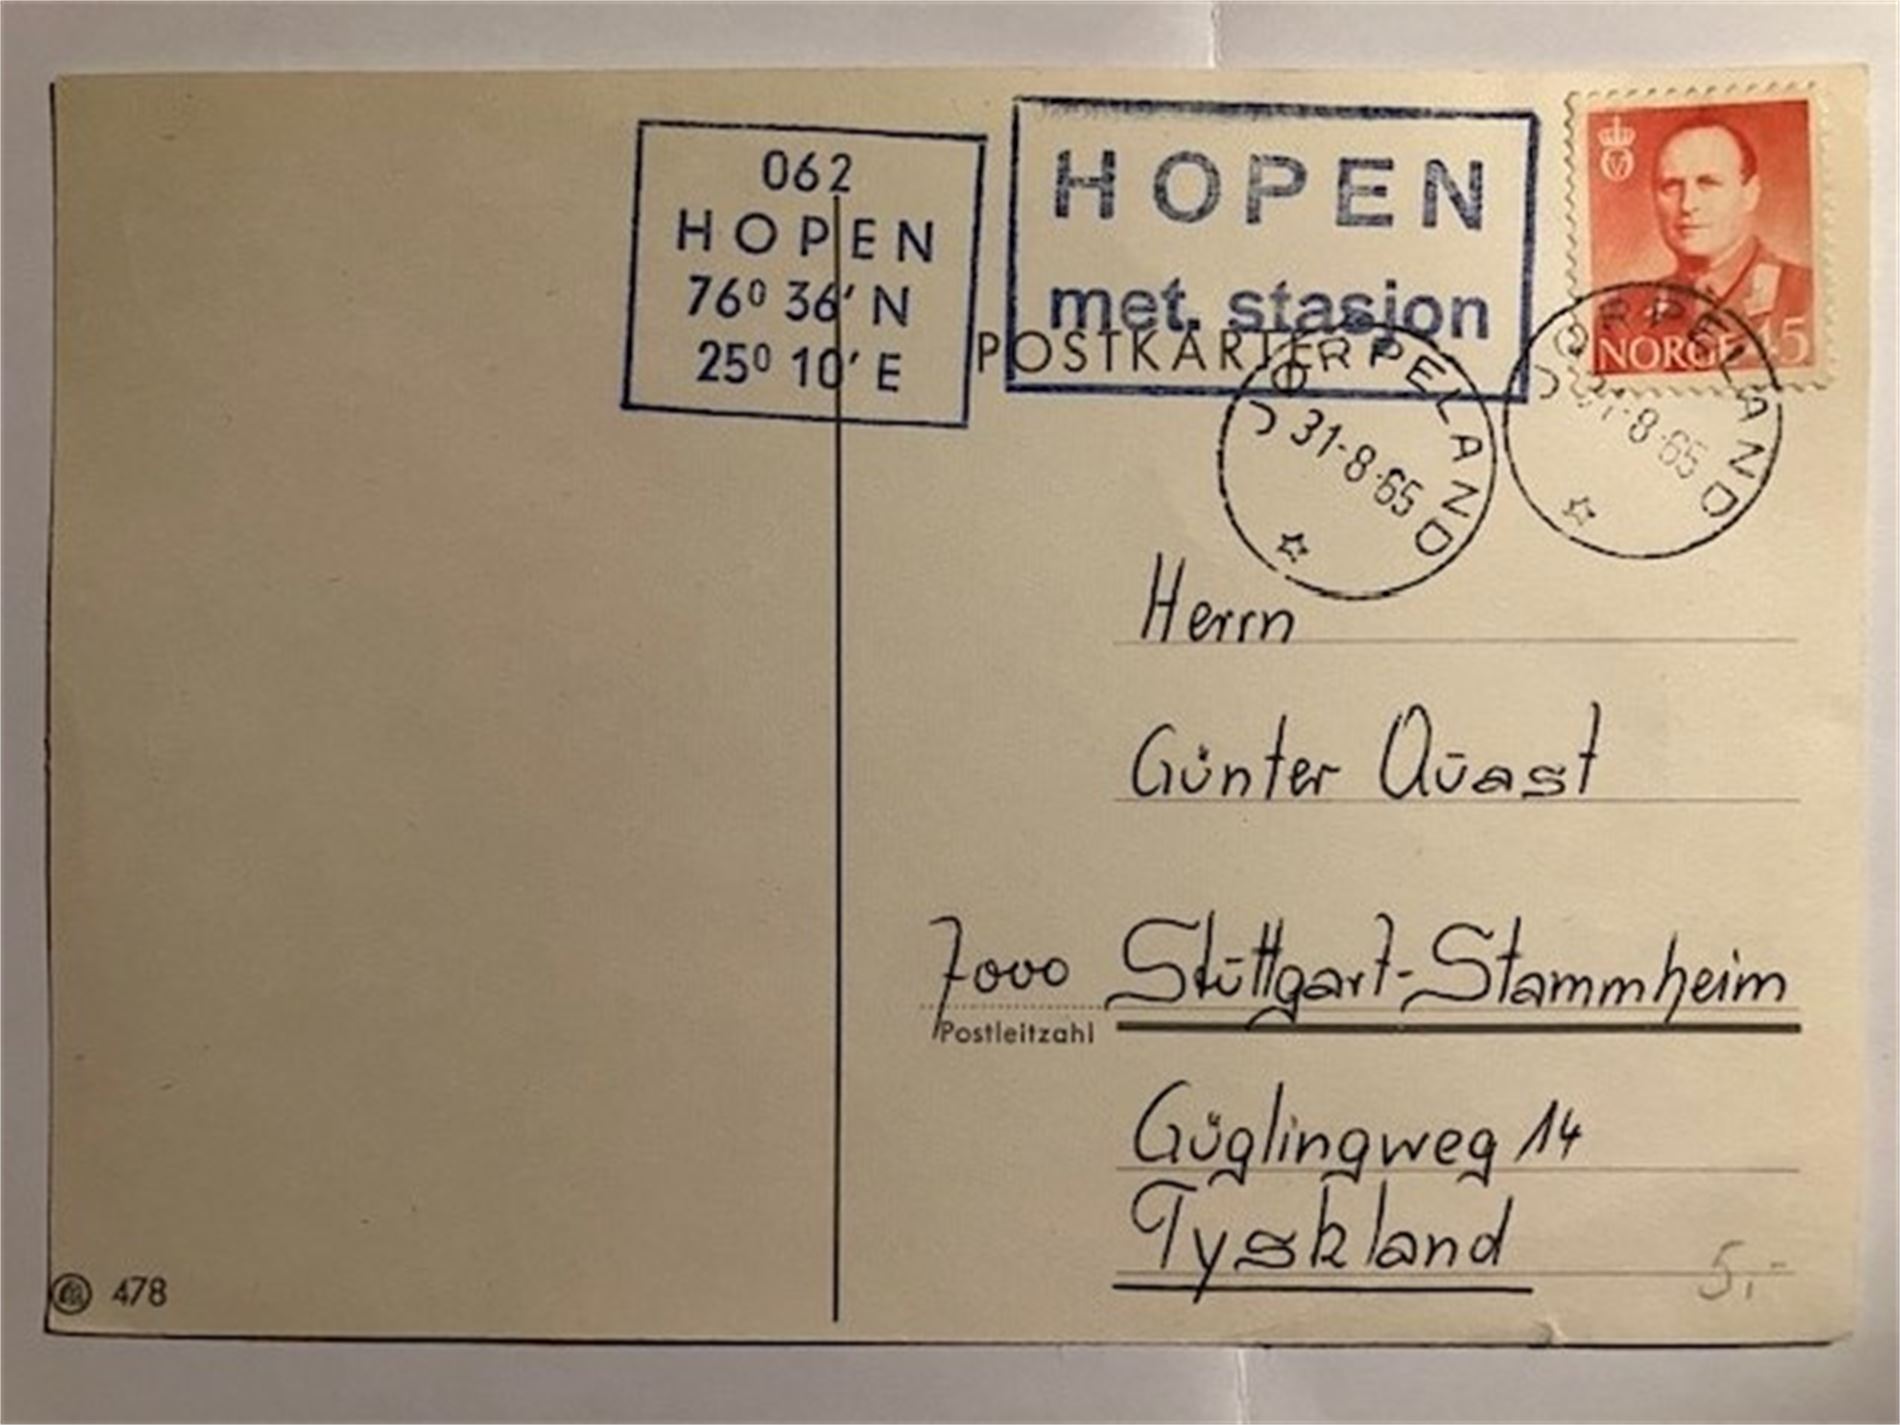 062
HOPEN
76⁰ 36′ N
25⁰ 10′ E
HOPEN
met. stasjon
POSTKARTE
NORGE 45
JØRPELAND
31-8-65
JØRPELAND
31-8-65
Herrn
Günter Quast
7000 Stuttgart-Stammheim
Postleitzahl
Güglingweg 14
Tyskland
5,-
478